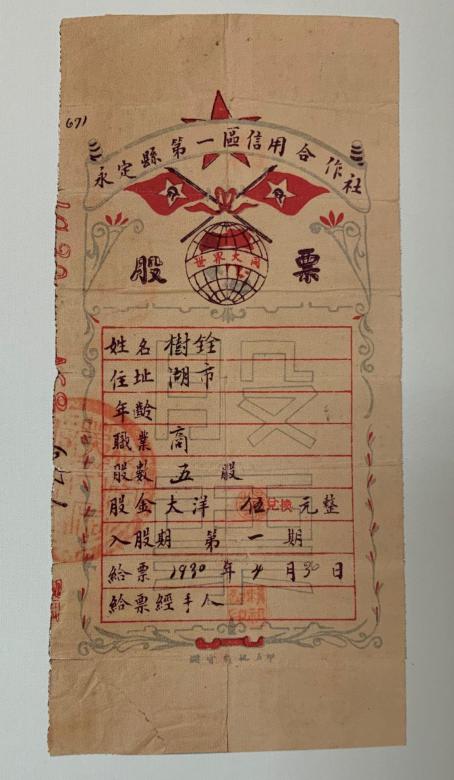 671
永定縣第一區信用合作社
世界大同
股票
姓名 樹銓
住址 湖市
年齡
職業 商
股數 五 股
股金大洋 伍 兌換 元整
入股期 第一期
給票 1930 年 4 月 30 日
給票經手人